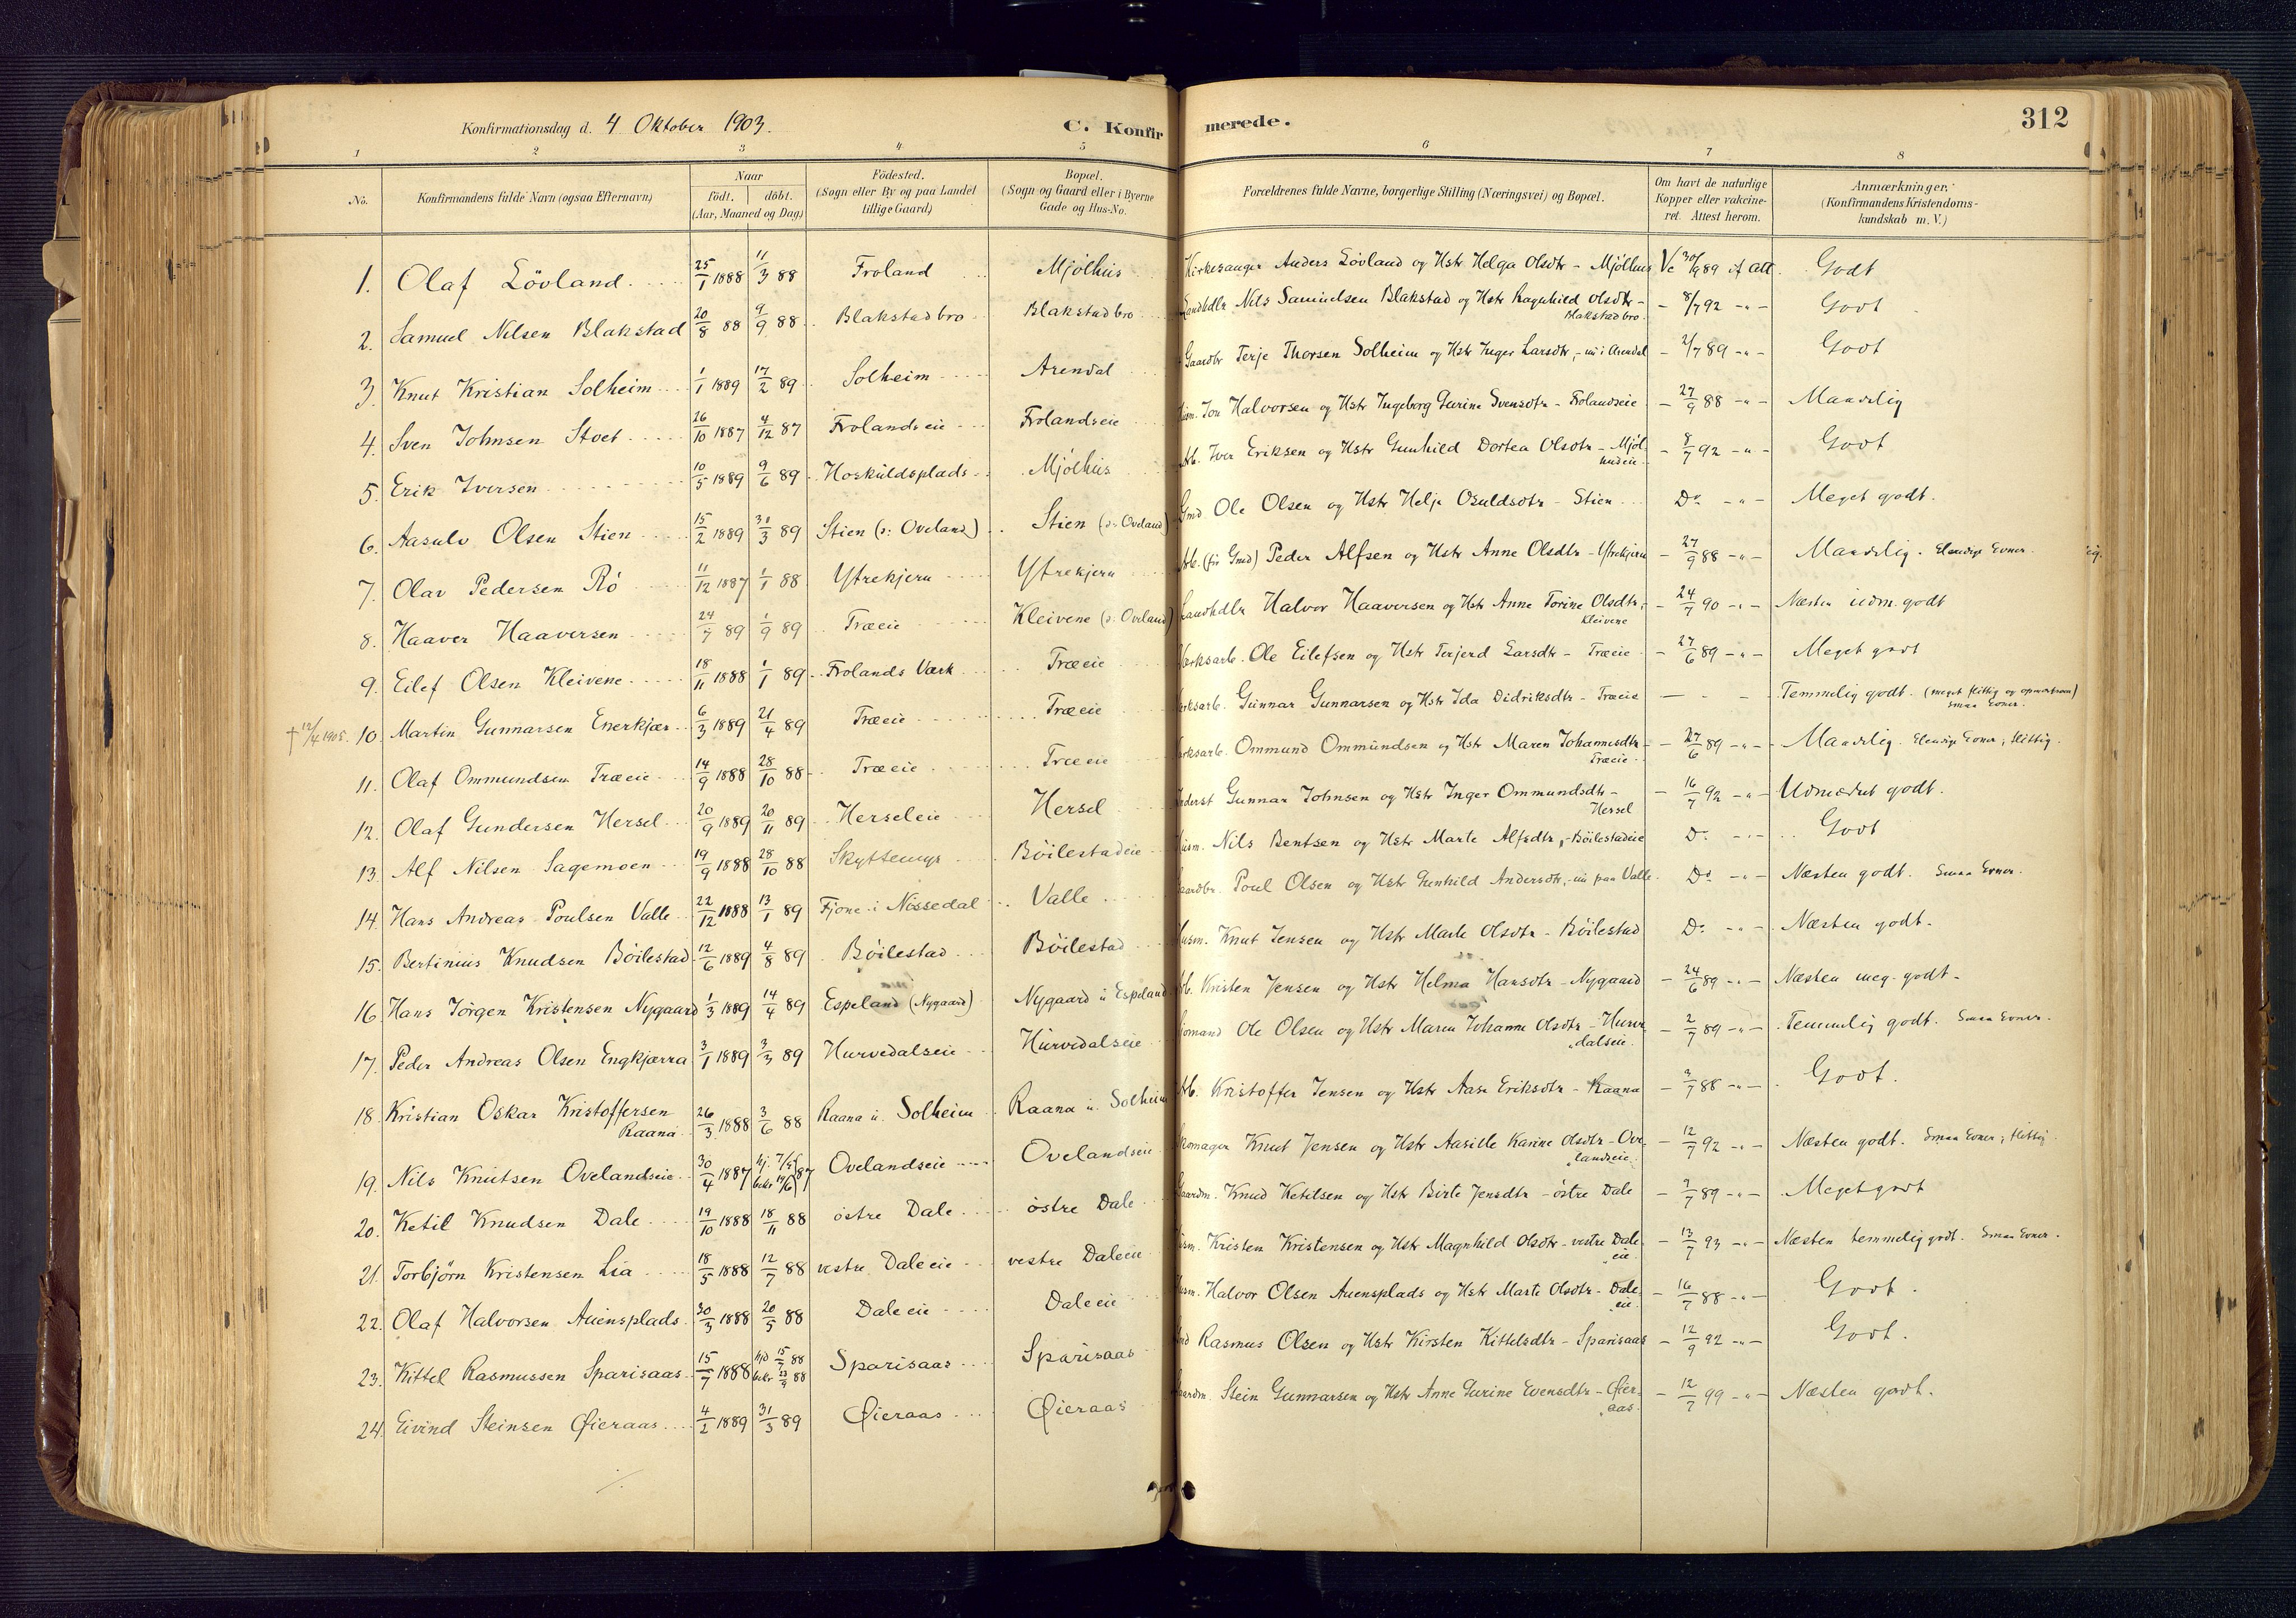 Konfirmationsdag d. 4 Oktober 1903.
C. Konfirmerede.
312
1 2 3 4 5 6 7 8
No. Konfirmandens fulde Navn (ogsaa Efternavn) Naar født. døbt. (Aar, Maaned og Dag) Fødested. (Sogn eller By og paa Landet tillige Gaard) Bopæl. (Sogn og Gaard eller i Byerne Gade og Hus-No. Forældrenes fulde Navne, borgerlige Stilling (Næringsvei) og Bopæl. Om havt de naturlige Kopper eller vakcineret. Attest herom. Anmærkninger. (Konfirmandens Kristendomskundskab m. V.)
1. Olaf Lövland. 25/1 1888 11/3 88 Froland Mjölhus Kirkesanger Anders Lövland og Hstr Helga Olsdtr - Mjölhus Vc 30/9 89 if att. Godt
2. Samuel Nilsen Blakstad 20/8 88 9/9 88 Blakstadbro Blakstadbro Landhdlr Nils Samuelsen Blakstad og Hstr Ragnhild Olsdtr - Blakstadbro - 8/7 92 -"- Godt
3. Knut Kristian Solheim 1/1 1889 17/2 89 Solheim Arendal Gaardbr Terje Thorsen Solheim og Hstr Inger Larsdtr, - nu i Arendal - 2/7 89 -"- Godt
4. Sven Johnsen Stoet 26/10 1887 4/12 87 Frolandseie Frolandseie Husm. Jon Halvorsen og Hstr Ingeborg Gurine Svensdtr - Frolandseie - 27/9 88 -"- Maadelig
5. Erik Iversen 10/5 1889 9/6 89 Hoskuldsplads Mjölhus Arb. Iver Eriksen og Hstr Gunhild Dortea Olsdtr - Mjölhuseie - 8/7 92 -"- Godt
6. Aasulv Olsen Stien 15/2 1889 31/3 89 Stien (v: Oveland) Stien (v: Oveland) Gmd. Ole Olsen og Hstr Helje Osuldsdtr - Stien Do -"- Meget godt.
7. Olav Pedersen Rö 11/12 1887 1/1 88 Yfrekjern Yfrekjern Arb. (för Gmd) Peder Alfsen og Hstr Anne Olsdtr - Yfrekjern - 27/9 88 -"- Maadelig. Elendige Evner.
8. Haaver Haaversen 24/7 89 1/9 89 Træeie Kleivene (v: Oveland) Landhdlr Halvor Haaversen og Hstr Anne Torine Olsdtr, Kleivene - 24/7 90 -"- Næsten udm. godt
9. Eilef Olsen Kleivene 18/11 1888 1/1 89 Frolands Værk Træeie Værksarb. Ole Eilefsen og Hstr Terjerd Larsdtr - Træeie - 27/6 89 -"- Meget godt
† 12/4 1905. 10. Martin Gunnarsen Enerkjær 6/3 1889 21/4 89 Træeie Træeie Værksarb. Gunnar Gunnarsen og Hstr Ida Didriksdtr - Træeie - - - Temmelig godt. (meget flittig og opmærksom) smaa Evner.
11. Olaf Ommundsen Træeie 14/9 1888 28/10 88 Træeie Træeie Værksarb. Ommund Ommundsen og Hstr Maren Johannesdtr - Træeie - 27/6 89 -"- Maadelig. Elendige Evner; flittig.
12. Olaf Gundersen Hersel 20/9 1889 20/11 89 Herseleie Hersel Inderst Gunnar Johnsen og Hstr Inger Ommundsdtr - Hersel - 16/7 92 -"- Udmærket godt.
13. Alf Nilsen Sagemoen 19/9 1888 28/10 88 Skyttemyr Böilestadeie Husm. Nils Bentsen og Hstr Marte Alfsdtr, - Böilestadeie Do -"- Godt
14. Hans Andreas Poulsen Valle 22/12 1888 13/1 89 Fjone i Nissedal Valle Gaardbr. Poul Olsen og Hstr Gunhild Andersdtr, - nu paa Valle. Do -"- Næsten godt. Smaa Evner.
15. Bertinius Knudsen Böilestad 12/6 1889 4/8 89 Böilestad Böilestad Husm. Knut Jensen og Hstr Marte Olsdtr - Böilestad Do -"- Næsten godt.
16. Hans Jörgen Kristensen Nygaard 1/3 1889 14/4 89 Espeland (Nygaard) Nygaard u. Espeland Arb. Kristen Jensen og Hstr Helma Hansdtr - Nygaard - 24/6 89 -"- Næsten meg. godt -
17. Peder Andreas Olsen Engkjærra 3/1 1889 3/3 89 Hurvedalseie Hurvedalseie Sjömand Ole Olsen og Hstr Maren Johanne Olsdtr - Hurvedalseie - 2/7 89 -"- Temmelig godt. Smaa Evner.
18. Kristian Oskar Kristoffersen Raana 26/3 1888 3/6 88 Raana u. Solheim Raana u. Solheim Arb. Kristoffer Jensen og Hstr Aase Eriksdtr - Raana - 3/7 88 -"- Godt.
19. Nils Knutsen Ovelandseie 30/4 1887 hj. 7/5 bekr 19/6 87 Ovelandseie Ovelandseie Skomager Knut Jensen og Hstr Aasille Karine Olsdtr - Ovelandseie - 12/7 92 -"- Næsten godt. Smaa Evner; flittig.
20. Ketil Knudsen Dale 19/10 1888 18/11 88 östre Dale östre Dale Gaardm. Knud Ketilsen og Hstr Birte Jensdtr - östre Dale - 2/7 89 -"- Meget godt
21. Torbjörn Kristensen Lia 18/5 1888 12/7 88 vestre Daleeie vestre Daleeie Husm. Kristen Kristensen og Hstr Magnhild Olsdtr - vestre Daleeie - 13/7 93 -"- Næsten temmelig godt. Smaa Evner.
22. Olaf Halvorsen Auensplads 30/3 1888 20/5 88 Daleeie Daleeie Husm. Halvor Olsen Auensplads og Hstr Marte Olsdtr - Daleeie - 16/7 88 -"- Godt.
23. Kittel Rasmussen Sparisaas 15/7 1888 hjd 15/7 88 bekr 23/9 88 Sparisaas Sparisaas Gmd Rasmus Olsen og Hstr Kirsten Kittelsdtr - Sparisaas - 12/9 92 -"- Godt.
24. Eivind Steinsen Øieraas 4/2 1889 31/3 89 Øieraas Øieraas Gaardm. Stein Gunnarsen og Hstr Anne Gurine Evensdtr - Øieraas. - 12/7 99 -"- Næsten godt.